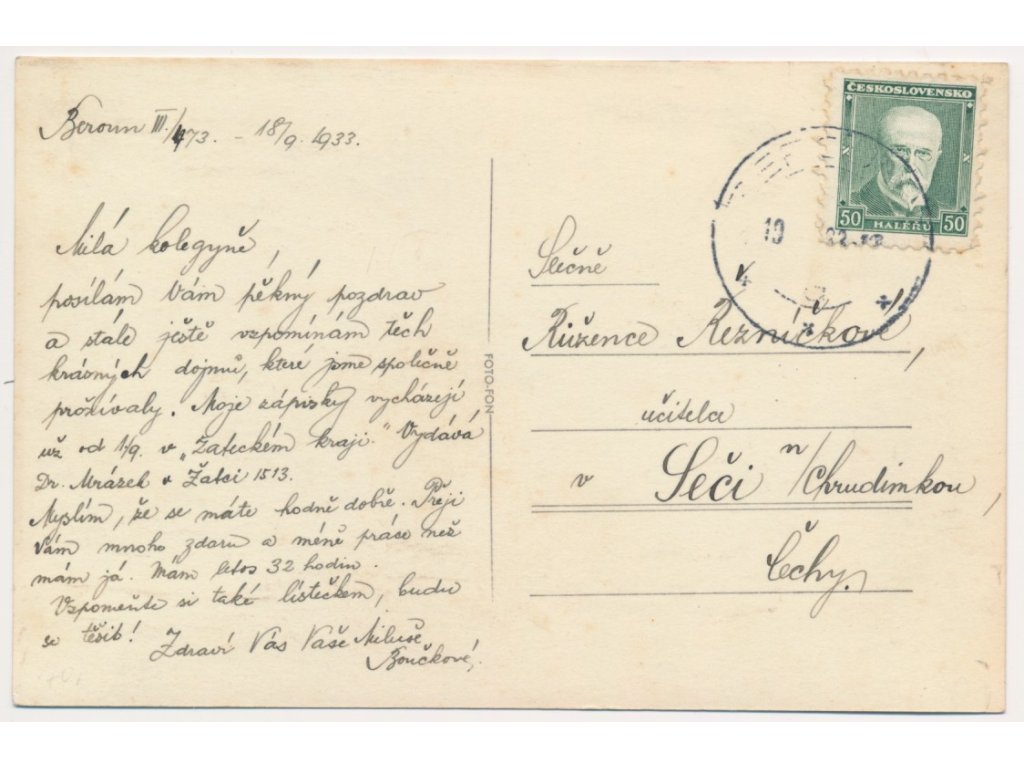 Beroun III./473. - 18/9. 1933.
Milá kolegyně,
posílám Vám pěkný pozdrav
a stále ještě vzpomínám těch
krásných dojmů, které jsme společně
prožívaly. Moje zápisky vycházejí
už od 1./9. v „Žateckém kraji." Vydává
Dr. Mrázek v Žatci 1513.
Myslím, že se máte hodně dobře. Přeji
Vám mnoho zdaru a méně práce než
mám já. Mám letos 32 hodin.
Vzpomeňte si také lístečkem, budu
se těšit! Zdraví Vás Vaše Miluše
Boučková.
FOTO-FON
ČESKOSLOVENSKO
50 HALÉŘŮ 50
19
Slečně
Růžence Řezníčkové,
učitelce
v Seči n/Chrudimkou,
Čechy.